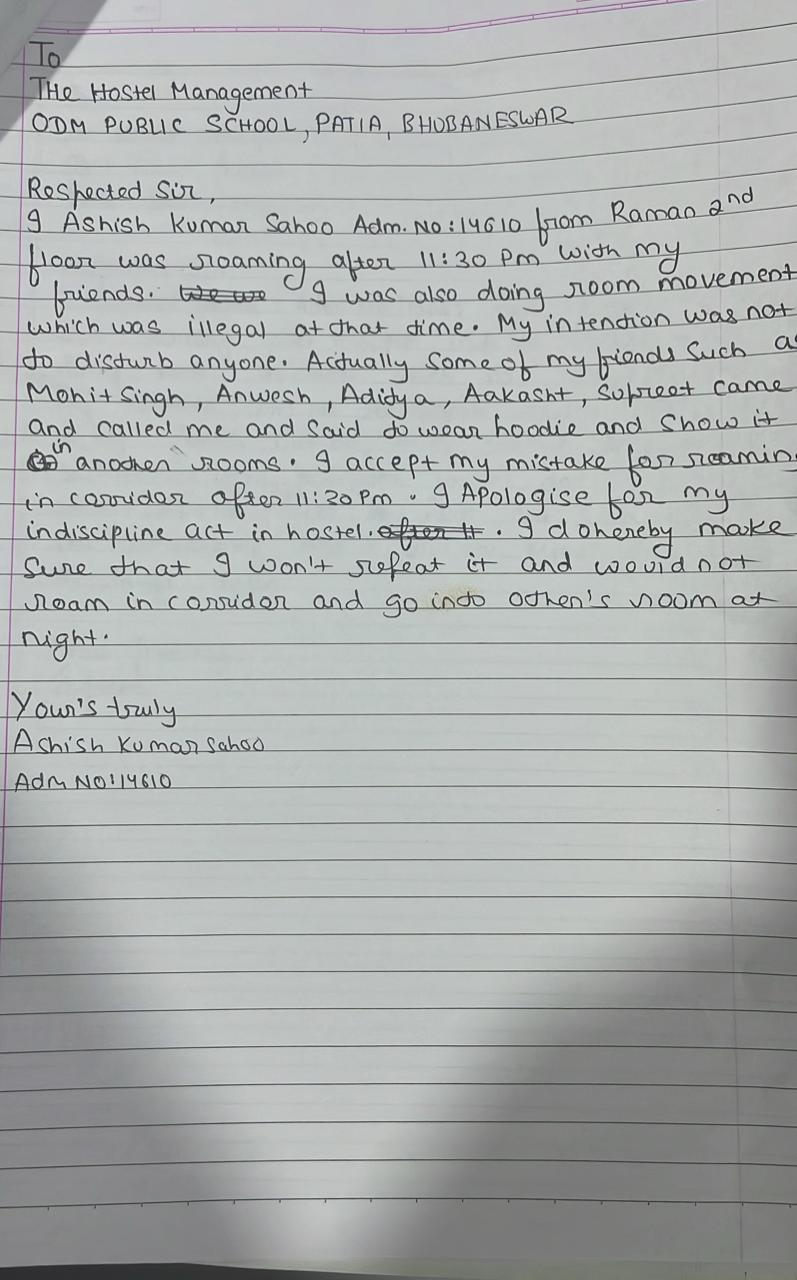 To
THe Hostel Management
ODM PUBLIC SCHOOL, PATIA, BHUBANESWAR
Respected Sir,
I Ashish Kumar Sahoo Adm. No: 14610 from Raman 2nd
floor was roaming after 11:30 Pm with my
friends. I was also doing room movement
which was illegal at that time. My intention was not
to disturb anyone. Actually some of my friends such as
Mohit Singh, Anwesh, Aditya, Aakasht, Supreet came
and called me and said to wear hoodie and show it
in another rooms. I accept my mistake for roaming
in corridor after 11:30 Pm. I Apologise for my
indiscipline act in hostel. I do hereby make
sure that I won't repeat it and would not
roam in corridor and go into other's room at
night.
Your's truly
Ashish Kumar Sahoo
Adm NO: 14610